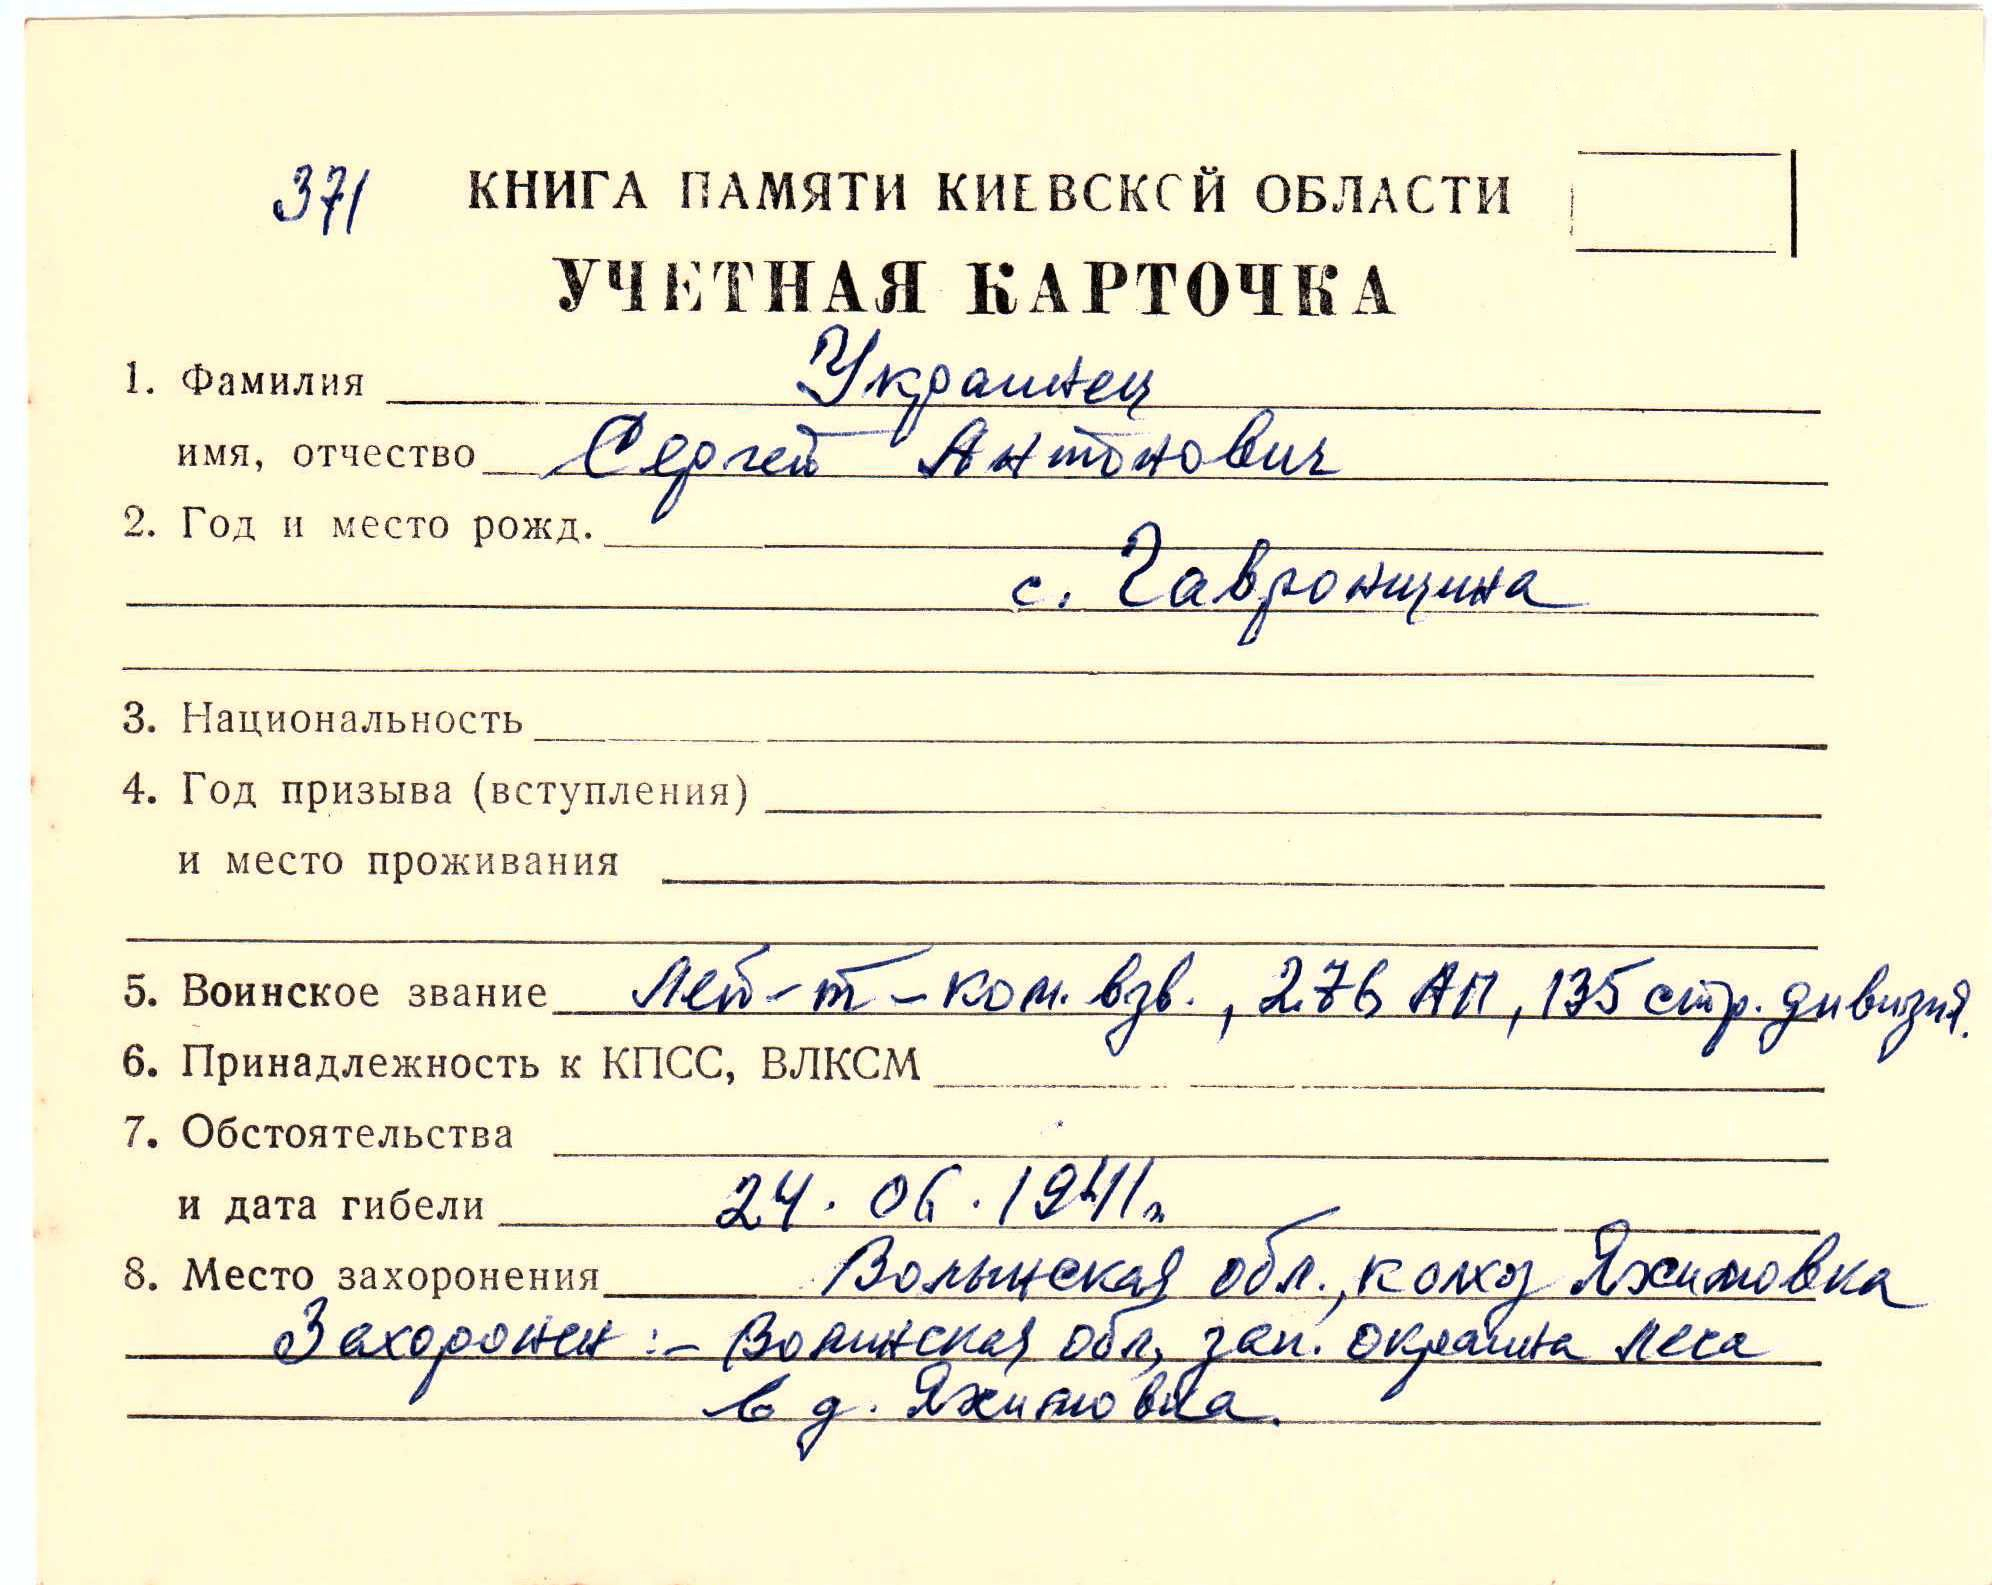 371 КНИГА ПАМЯТИ КИЕВСКОЙ ОБЛАСТИ
УЧЕТНАЯ КАРТОЧКА
1. Фамилия Украинец
имя, отчество Сергей Антонович
2. Год и место рожд.
с. Гавронщина
3. Национальность
4. Год призыва (вступления)
и место проживания
5. Воинское звание Лей-т-ком. взв., 276 АП, 135 стр. дивизия.
6. Принадлежность к КПСС, ВЛКСМ
7. Обстоятельства
и дата гибели 24.06.1941г.
8. Место захоронения Волынская обл., колхоз Яхимовка
Захоронен:- Волынская обл, зап. окраина леса
в д. Яхимовка.